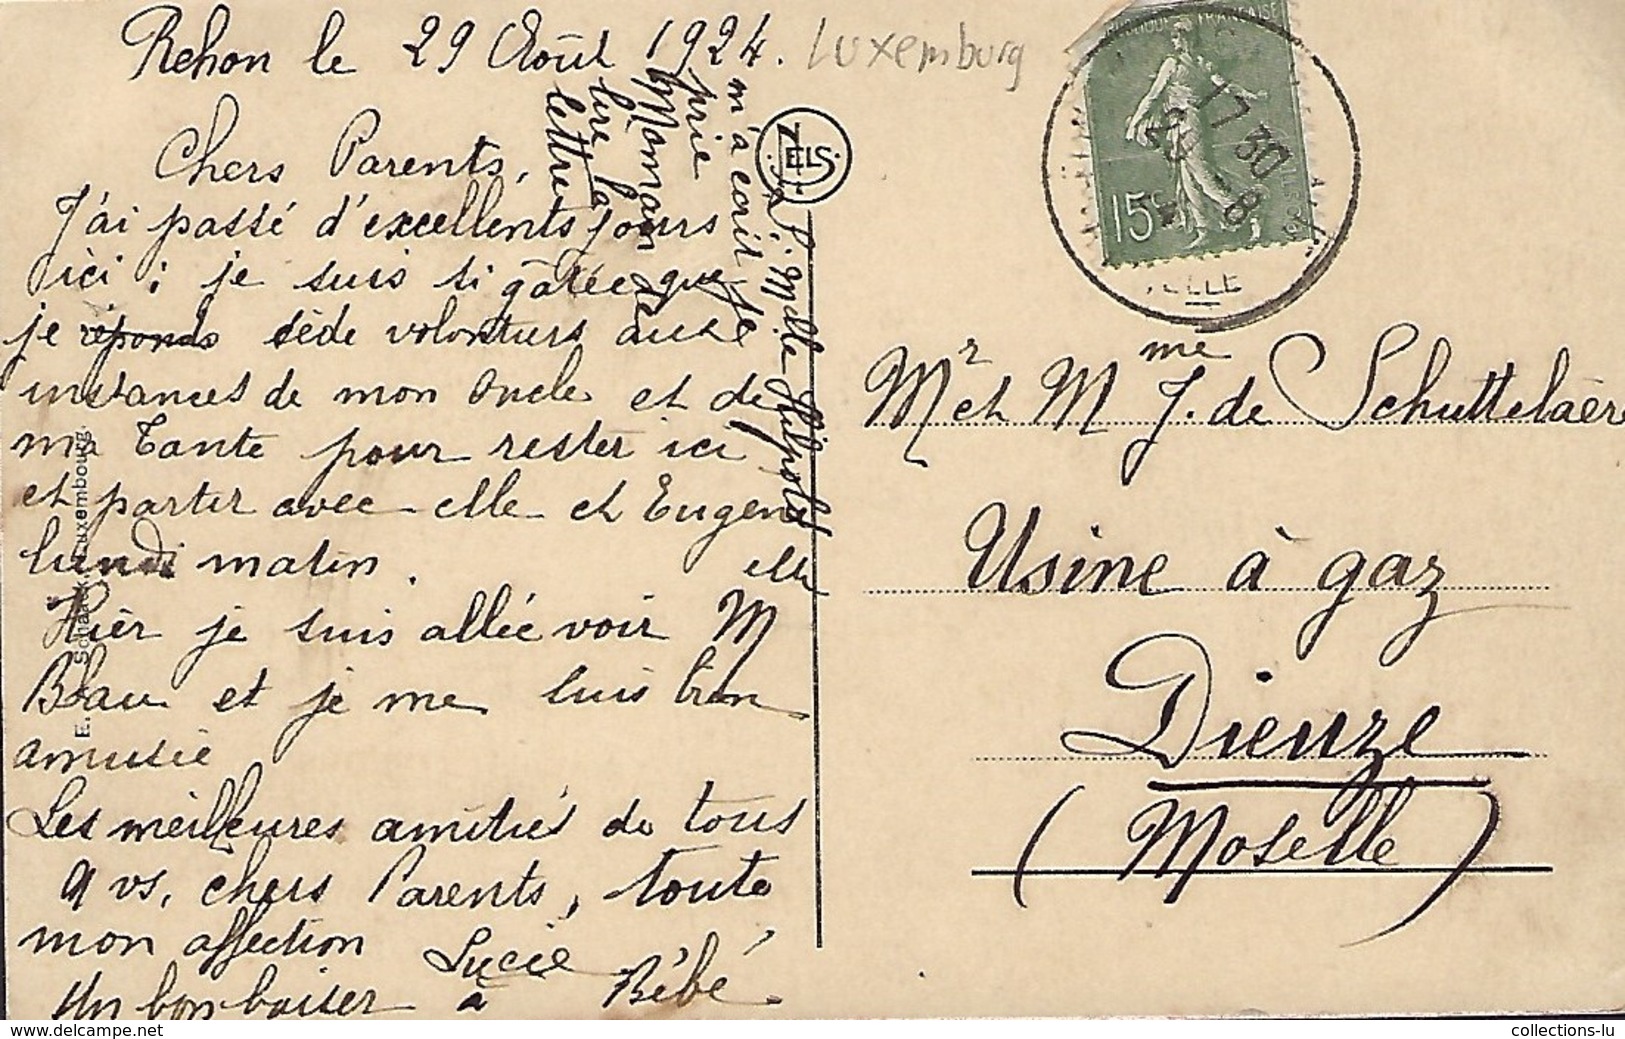 Rehon le 29 Août 1924. Luxemburg
Chers Parents,
J'ai passé d'excellents jours
ici ; je suis si gâtée que
je réponds cède volontiers aux
instances de mon Oncle et de
ma Tante pour rester ici
et partir avec elle et Eugene
lundi matin.
Hier je suis allée voir M
Blau et je me suis bien
amusée
Les meilleures amitiés de tous
à vs, chers Parents, toute
mon affection Lucie
Un bon baiser à Bébé.
P.S. Melle Hilpold
m'a écrit, elle
prie
Maman de
lire la
lettre
NELS
E. Schaack, Luxembourg.
REPUBLIQUE FRANÇAISE
15c
17 30
29 -8
24
Mr et Mme J. de Schuttelaère
Usine à gaz
Dieuze
(Moselle)
collections-lu